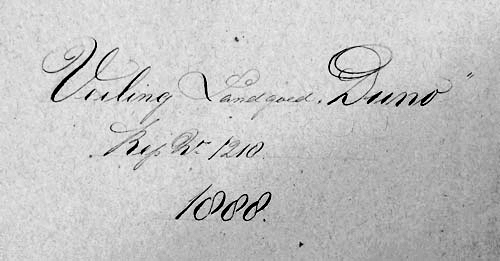 Veiling Landgoed „Duno"
Rep. Nr. 1210.
1888.